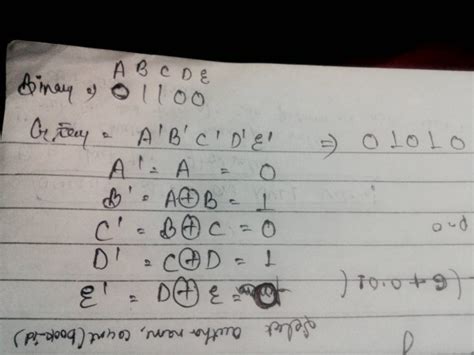 A B C D E
Binary => 01100
Gray = A' B' C' D' E' => 01010
A' = A = 0
B' = A⊕B = 1
C' = B⊕C = 0
D' = C⊕D = 1
E' = D⊕E = 0
(6+0.01
select author nam, count(book-id)